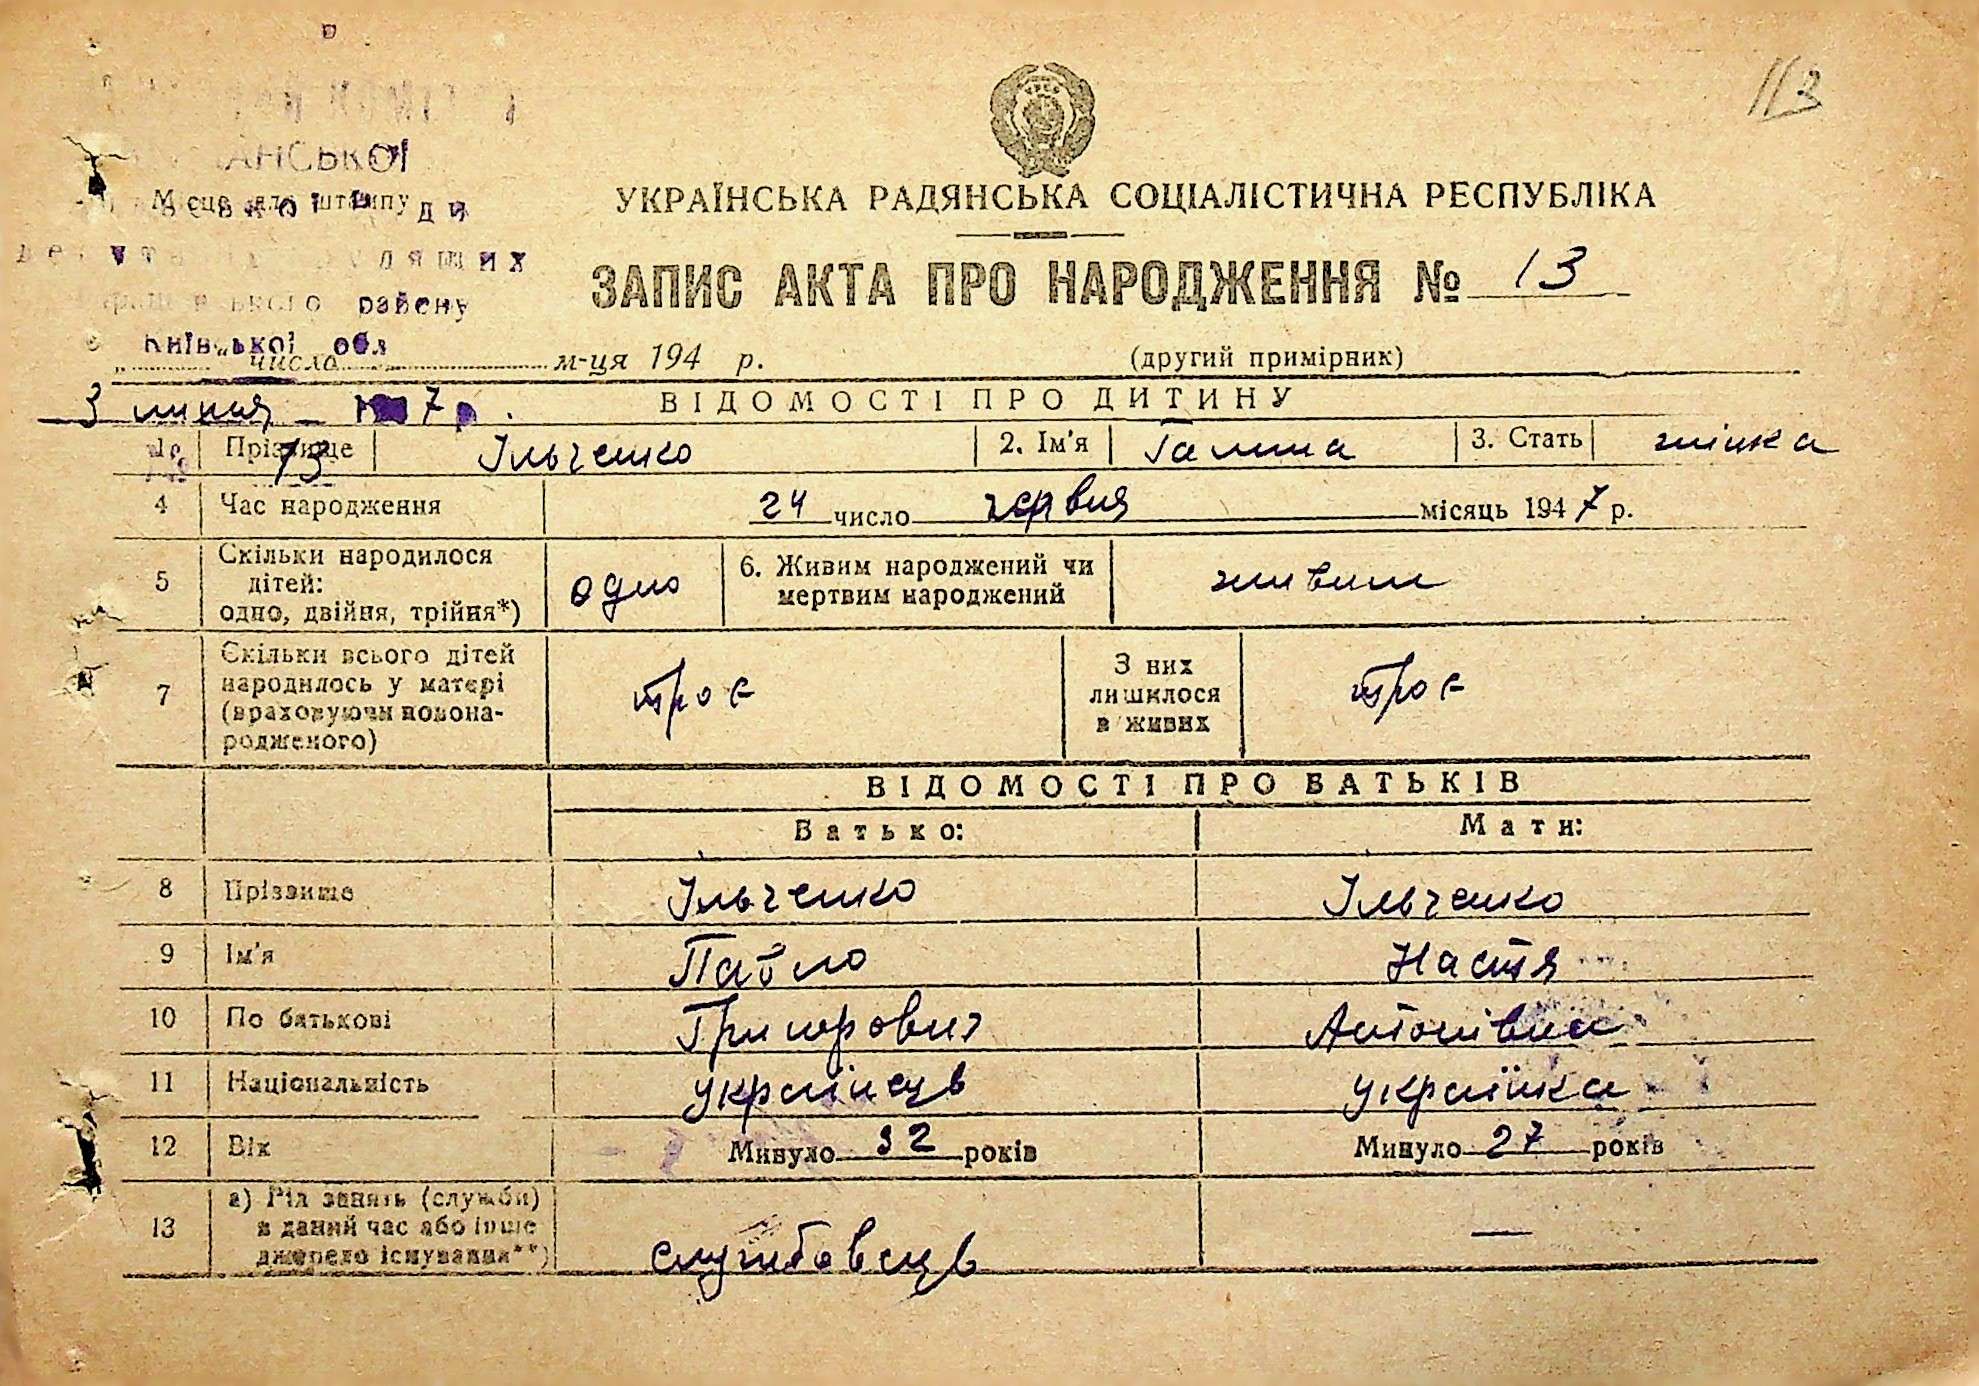 113
АНСЬКОЇ
Місце для штампу
районy
Київської обл
УКРАЇНСЬКА РАДЯНСЬКА СОЦІАЛІСТИЧНА РЕСПУБЛІКА
ЗАПИС АКТА ПРО НАРОДЖЕННЯ № 13
число м-ця 194 р. (другий примірник)
3 липня 7 р.
ВІДОМОСТІ ПРО ДИТИНУ
№ 13 Прізвище Ільченко 2. Ім'я Галина 3. Стать жінка
4 Час народження 24 число червня місяць 1947 р.
5 Скільки народилося дітей: одно, двійня, трійня*) одно 6. Живим народжений чи мертвим народжений живим
7 Скільки всього дітей народилось у матері (враховуючи новонародженого) троє З них лишилося в живих троє
ВІДОМОСТІ ПРО БАТЬКІВ
Батько: Мати:
8 Прізвище Ільченко Ільченко
9 Ім'я Павло Настя
10 По батькові Григорович Антонівна
11 Національність українець українка
12 Вік Минуло 32 років Минуло 27 років
13 а) Рід занять (служби) в даний час або інше джерело існування**) службовець —